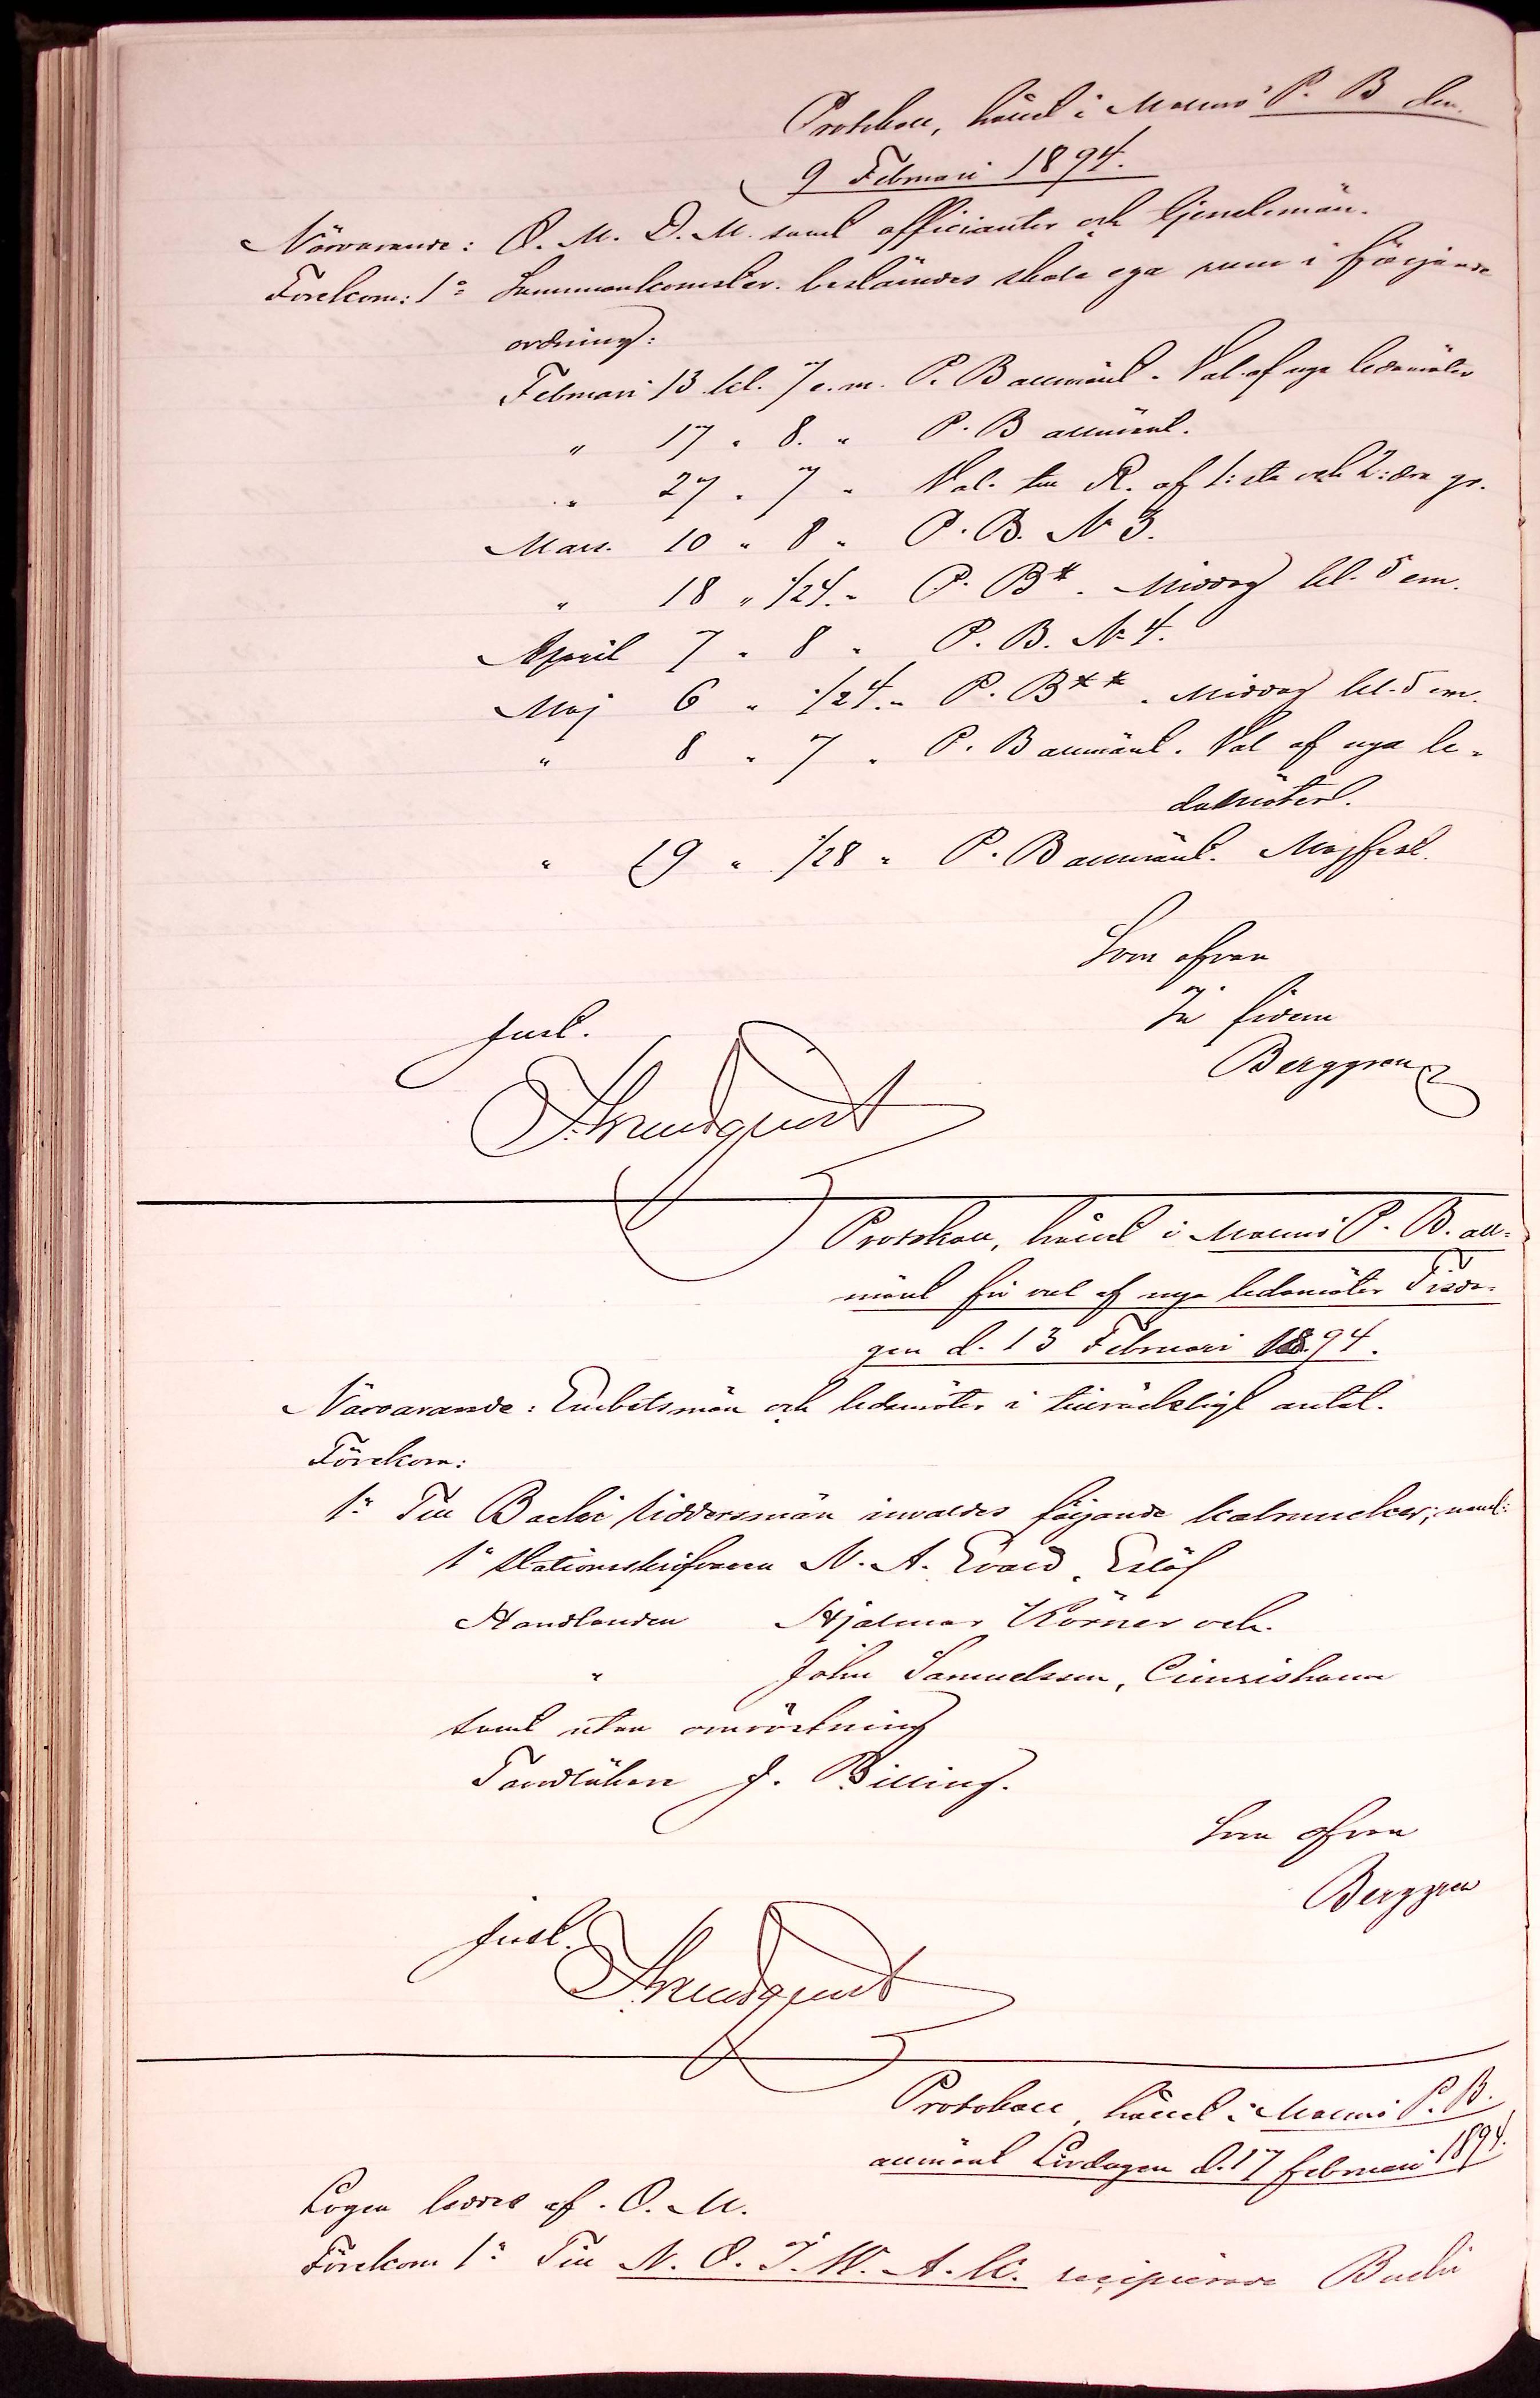 Protokoll, hållet i Malmö P. B den
9 Februari 1894.
Närvarande: O. M. D. M. samt officianter och tjenstemän.
Förekom: 1º Sammankomster bestämdes skola ega rum i följande
ordning:
Februari 13 kl. 7 e.m. P. B allmänt. Val af nya ledamöter
" 17 " 8 " P. B allmänt.
" 27 " 7 " Val till R. af 1:sta och 2:dra gr.
Mars 10 " 8 " P. B. № 3.
" 18 " 1/24 " P. B*. Middag kl. 5 em.
April 7 " 8 " P. B. № 4.
Maj 6 " 1/24 " P. B**. Middag kl. 5 em.
" 8 " 7 " P. B allmänt. Val af nya le-
damöter.
" 19 " 1/28 " P. B allmänt. Majfest.
Som ofvan
In fidem
Just. Berggren
Protokoll, hållet i Malmö P. B. all-
mänt för val af nya ledamöter Tisda-
gen d. 13 Februari 1894.
Närvarande: Embetsmän och ledamöter i tillräckligt antal.
Förekom:
1º Till Bacchi Riddersmän invaldes följande kalmucker; neml:
1º Stationsskrifvaren N. A. Evald, Eslöf
Handlanden Hjalmar Körner och
" John Samuelsson, Cimrishamn
samt utan omröstning
Tandläkare J. Billing.
Som ofvan
Berggren
Just.
Protokoll, hållet i Malmö P. B.
allmänt Lördagen d. 17 februari 1894.
Logen leddes af O. M.
Förekom 1º Till N. O. J. W. A. K. recipierade Bacchi